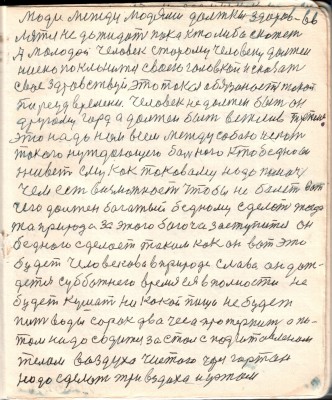 Люди между людями должны здоров-ев
лятя не дожидат пока кто либа скожет
А молодой человек старому человеку должен
низко поклонится своею головкой и сказат
свое здравствуй это така обязаност такой
перед времени. Человек не должен быт он
другому горд а должен быт вежлив
Это надо нам всем между собою искат
такого нуждающего бедного кто бедно он
живет ему как таковому надо помоч
чем ест вазможност чтобы не балет вот
чего должен богатый бедному сделат тогда
та природа за этого богоча заступится он
бедного сделает таким как он вот это
будет человекова в природе слава он дож-
детя субботнего время ея в полности не
будет кушат не какой пищи не будет
пит воды сорок два часа протерпит а по-
том надо содится за стол с подготовленом
телом воздуха чистого через гортан
надо сделат три вздоха и у этом